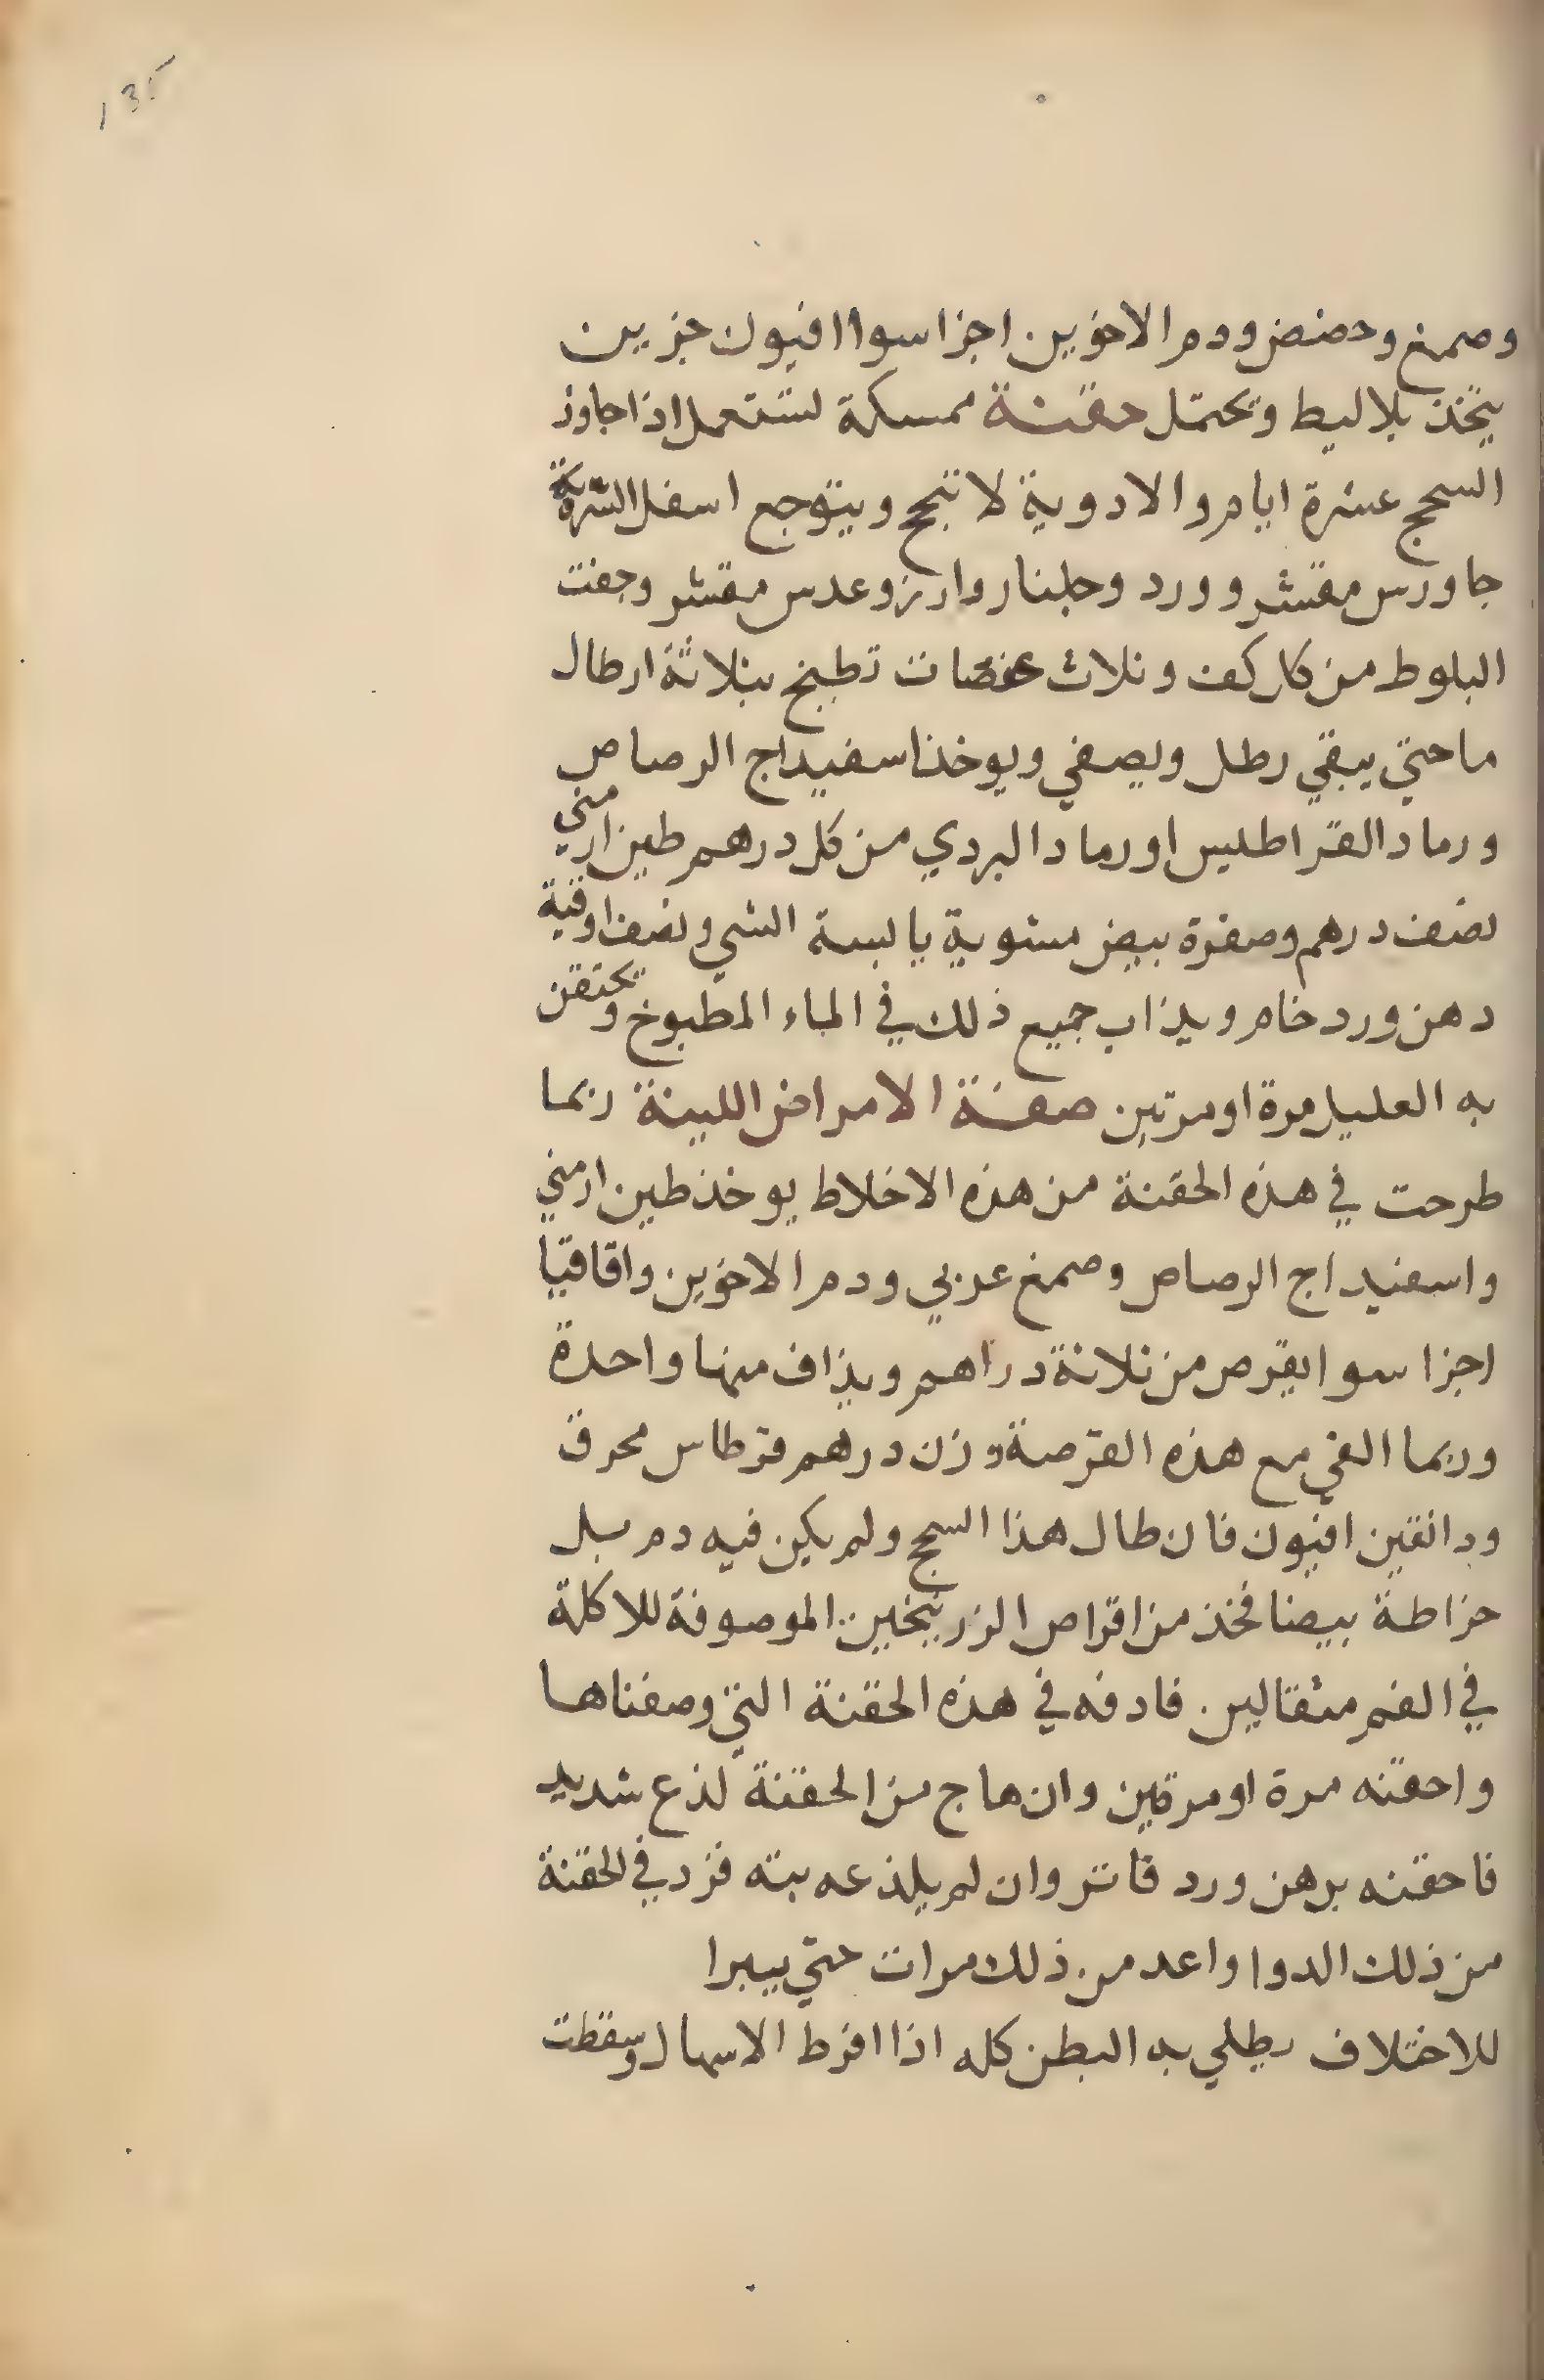 135
وصمغ وحضض ودم الاخوين اجزا سوا افيون جزين
يتخذ بلاليط وتحتمل حقنة ممسكة تستعمل اذا جاوز
السحج عشرة ايام والادوية لا تنجح ويتوجع اسفل السرة
جاورس مقشر وورد وجلنار وارز وعدس مقشر وجفت
البلوط من كل كف وثلاث عفصات تطبخ بثلاثة ارطال
ما حتي يبقي رطل ويصفي ويوخذ اسفيداج الرصاص
ورماد القراطيس او رماد البردي من كل درهم طين ارمني
نصف درهم وصفرة بيض مشوية يابسة الشي ونصف اوقية
دهن ورد خام ويذاب جميع ذلك في الماء المطبوخ وتحتقن
به العليل مرة او مرتين صفة الامراض اللينة ربما
طرحت في هذه الحقنة من هذه الاخلاط يوخذ طين ارمني
واسفيداج الرصاص وصمغ عربي ودم الاخوين واقاقيا
اجزا سوا يقرص من ثلاثة دراهم ويذاف منها واحدة
وربما القي مع هذه القرصة وزن درهم قرطاس محرق
ودانقين افيون فان طال هذا السحج ولم يكن فيه دم بل
خراطة بيضا فخذ من اقراص الزرنيخين الموصوفة للاكلة
في الفم مثقالين فادفه في هذه الحقنة التي وصفناها
واحقنه مرة او مرتين وان هاج من الحقنة لذع شديد
فاحقنه بدهن ورد فاتر وان لم يلذعه بته فزد في الحقنة
من ذلك الدوا واعد من ذلك مرات حتي يبرا
للاختلاف يطلي به البطن كله اذا افرط الاسهال وسقطت